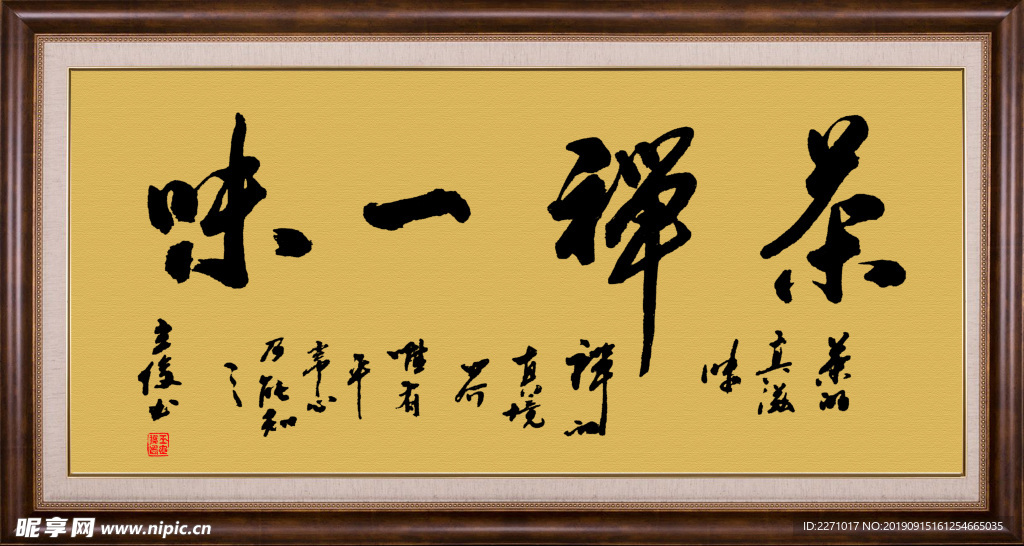 茶禪一味
茶的
真滋
味
禅的
真境
界
唯有
平
常心
乃能知
之
王俊书
昵享网 www.nipic.cn
ID:2271017 NO:20190915161254665035